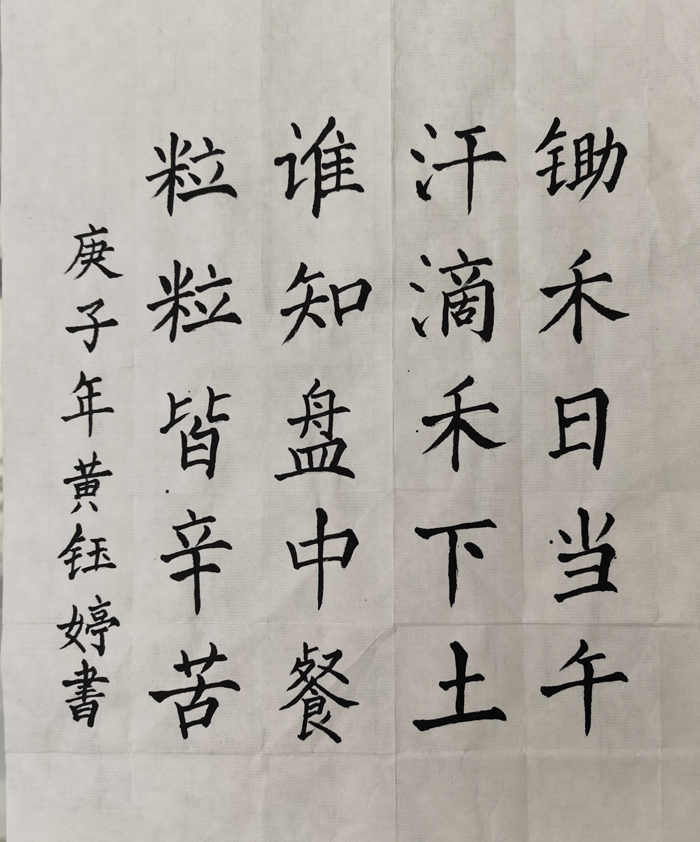 锄禾日当午
汗滴禾下土
谁知盘中餐
粒粒皆辛苦
庚子年黄钰婷書